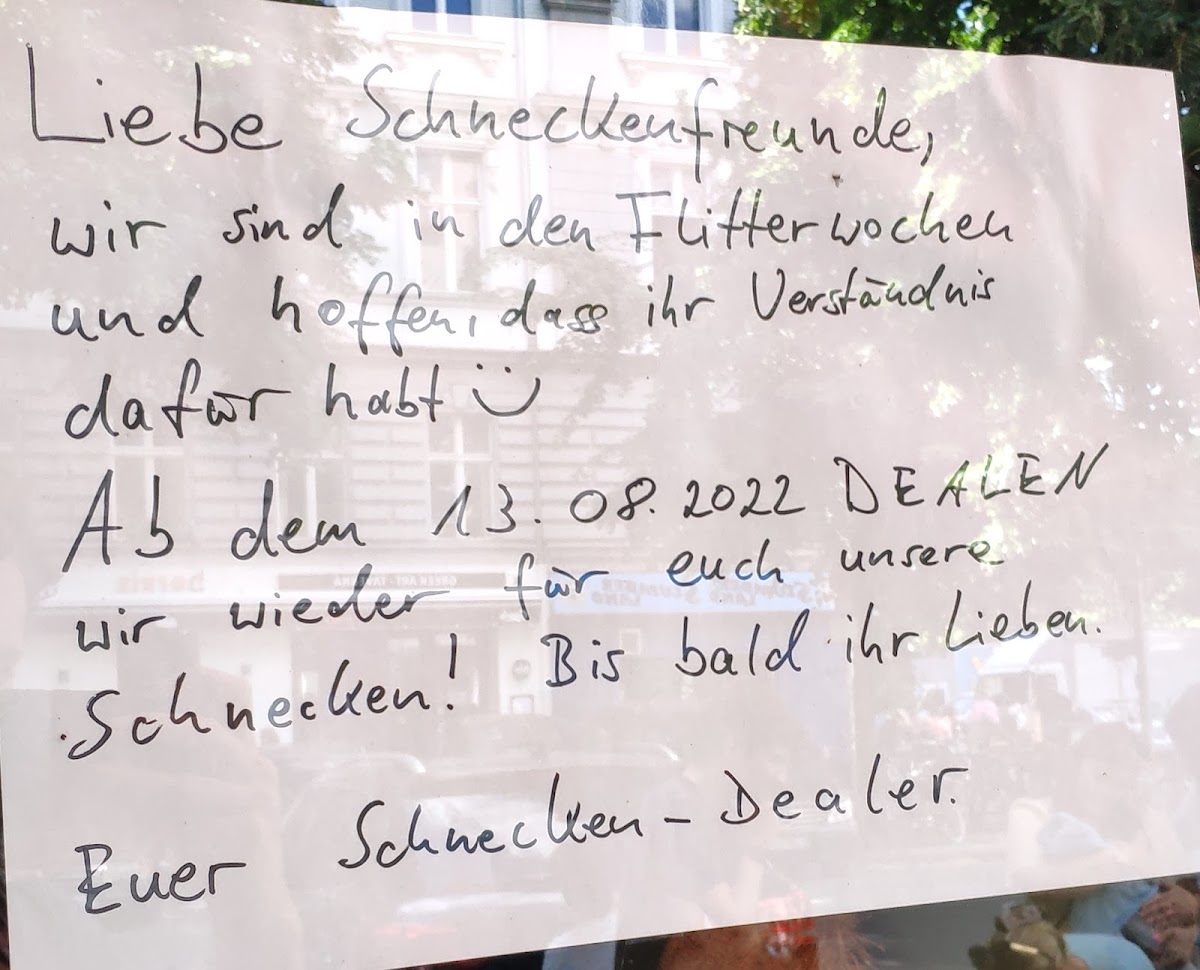 Liebe Schneckenfreunde,
wir sind in den Flitterwochen
und hoffen, dass ihr Verständnis
dafür habt ☺
Ab dem 13.08.2022 DEALEN
wir wieder für euch unsere
Schnecken! Bis bald ihr Lieben.
Euer Schnecken-Dealer.